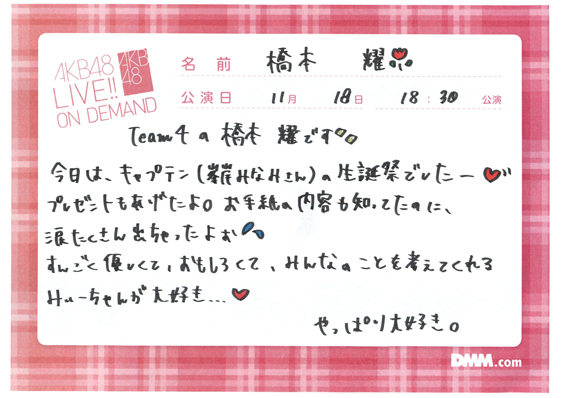 AKB48
LIVE!!
ON DEMAND
AKB
48
名前 橋本 耀
公演日 11月 18日 18:30 公演
Team4の橋本 耀です
今日は、キャプテン(峯岸みなみさん)の生誕祭でしたー
プレゼントもあげたよ。お手紙の内容も知ってたのに、
涙たくさん出ちゃったよぉ
すんごく優しくて、おもしろくて、みんなのことを考えてくれる
みぃーちゃんが大好き...
やっぱり大好き。
DMM.com